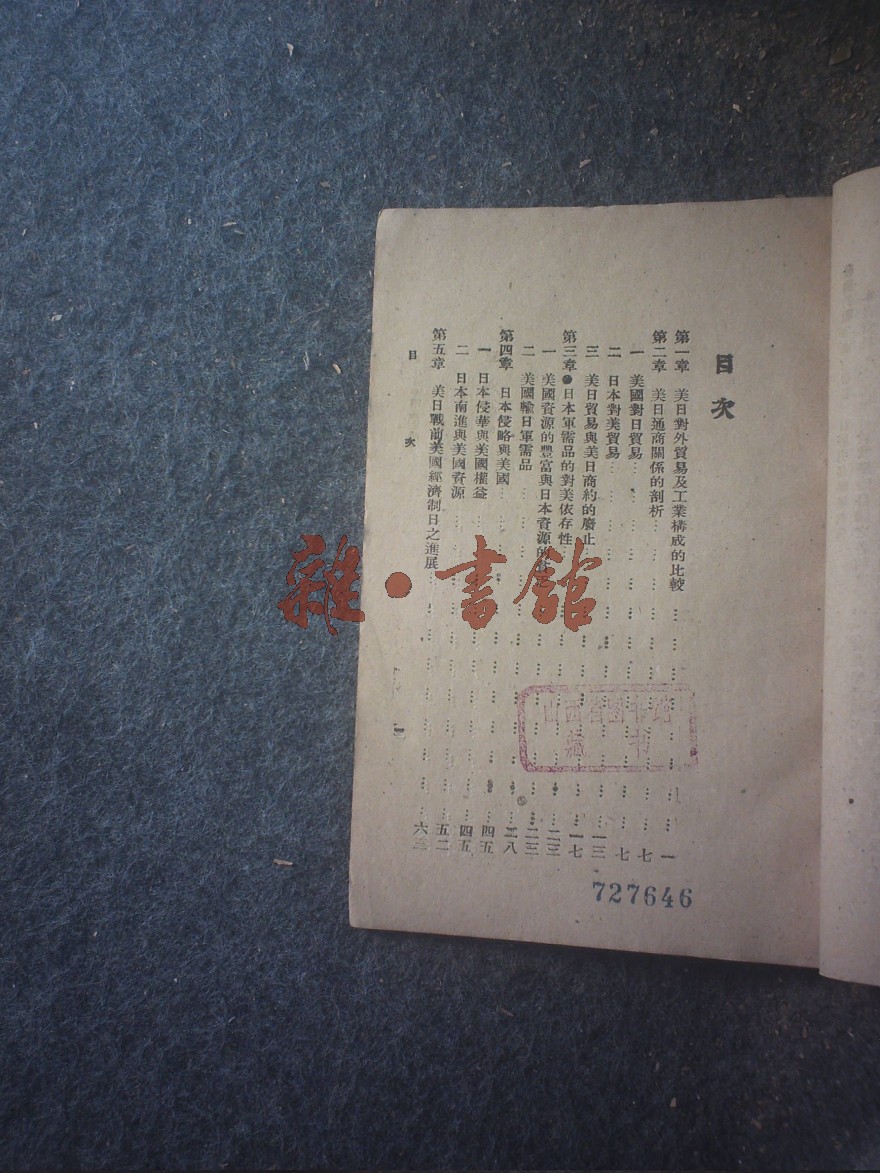 目次
第一章 美日對外貿易及工業構成的比較……一
第二章 美日通商關係的剖析……七
一 美國對日貿易……七
二 日本對美貿易……一三
三 美日貿易與美日商約的廢止……一七
第三章 日本軍需品的對美依存性……二三
一 美國資源的豐富與日本資源的……二三
二 美國輸日軍需品……二八
第四章 日本侵略與美國……四五
一 日本侵華與美國權益……四五
二 日本南進與美國資源……五二
第五章 美日戰前美國經濟制日之進展……六三
目次
一
雜·書館
山西省圖書館
藏書
727646